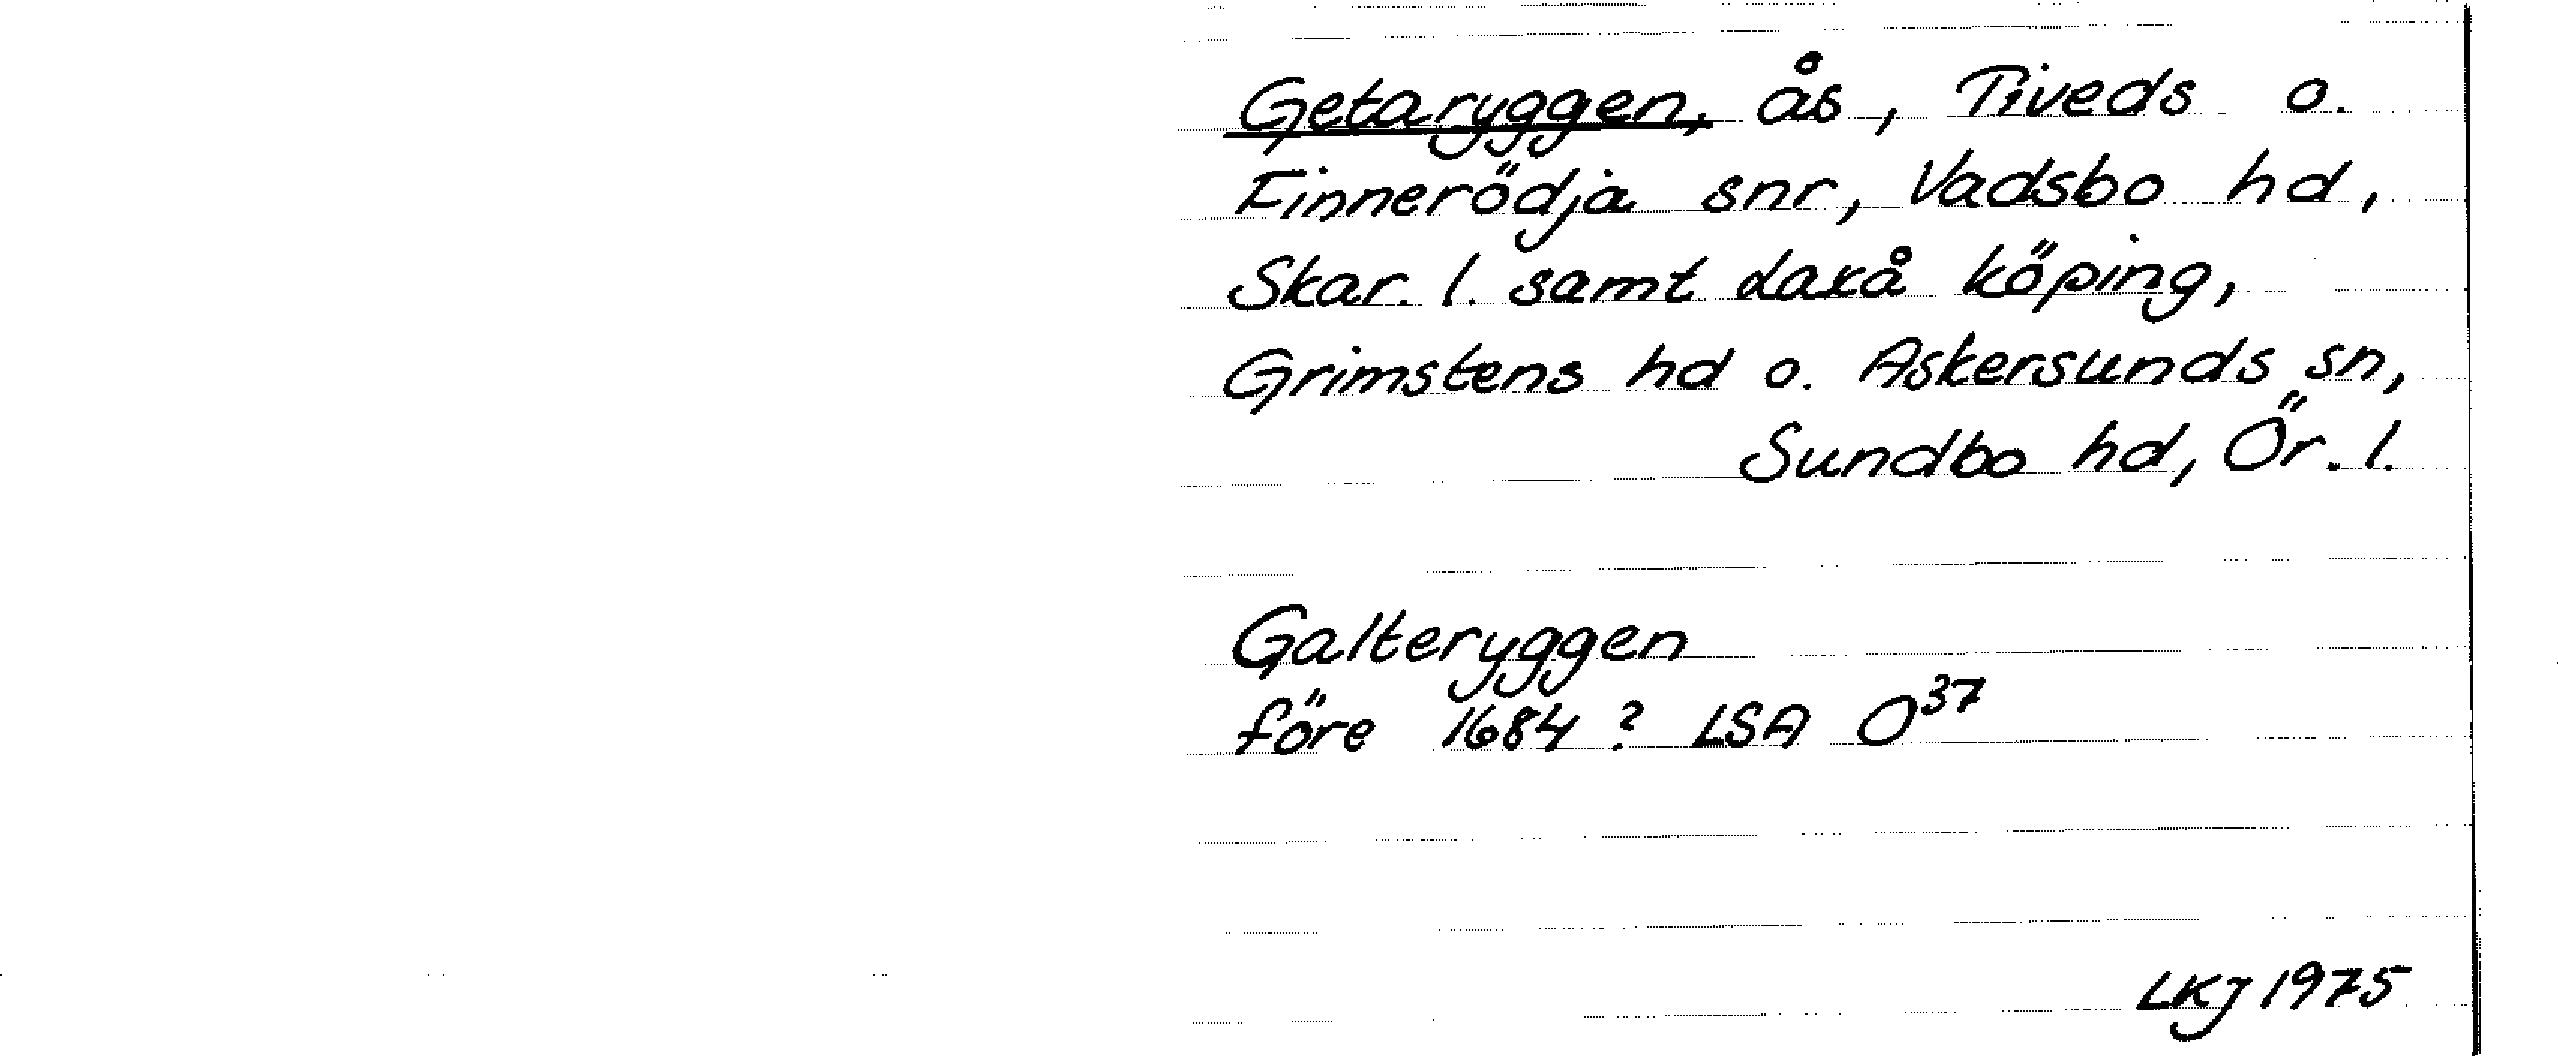 Getaryggen, ås, Tiveds o.
Finnerödja snr, Vadsbo hd,
Skar. l. samt Laxå köping,
Grimstens hd o. Askersunds sn,
Sundbo hd, Ör. l.
Galteryggen
före 1684? LSA O³⁷
LKJ 1975